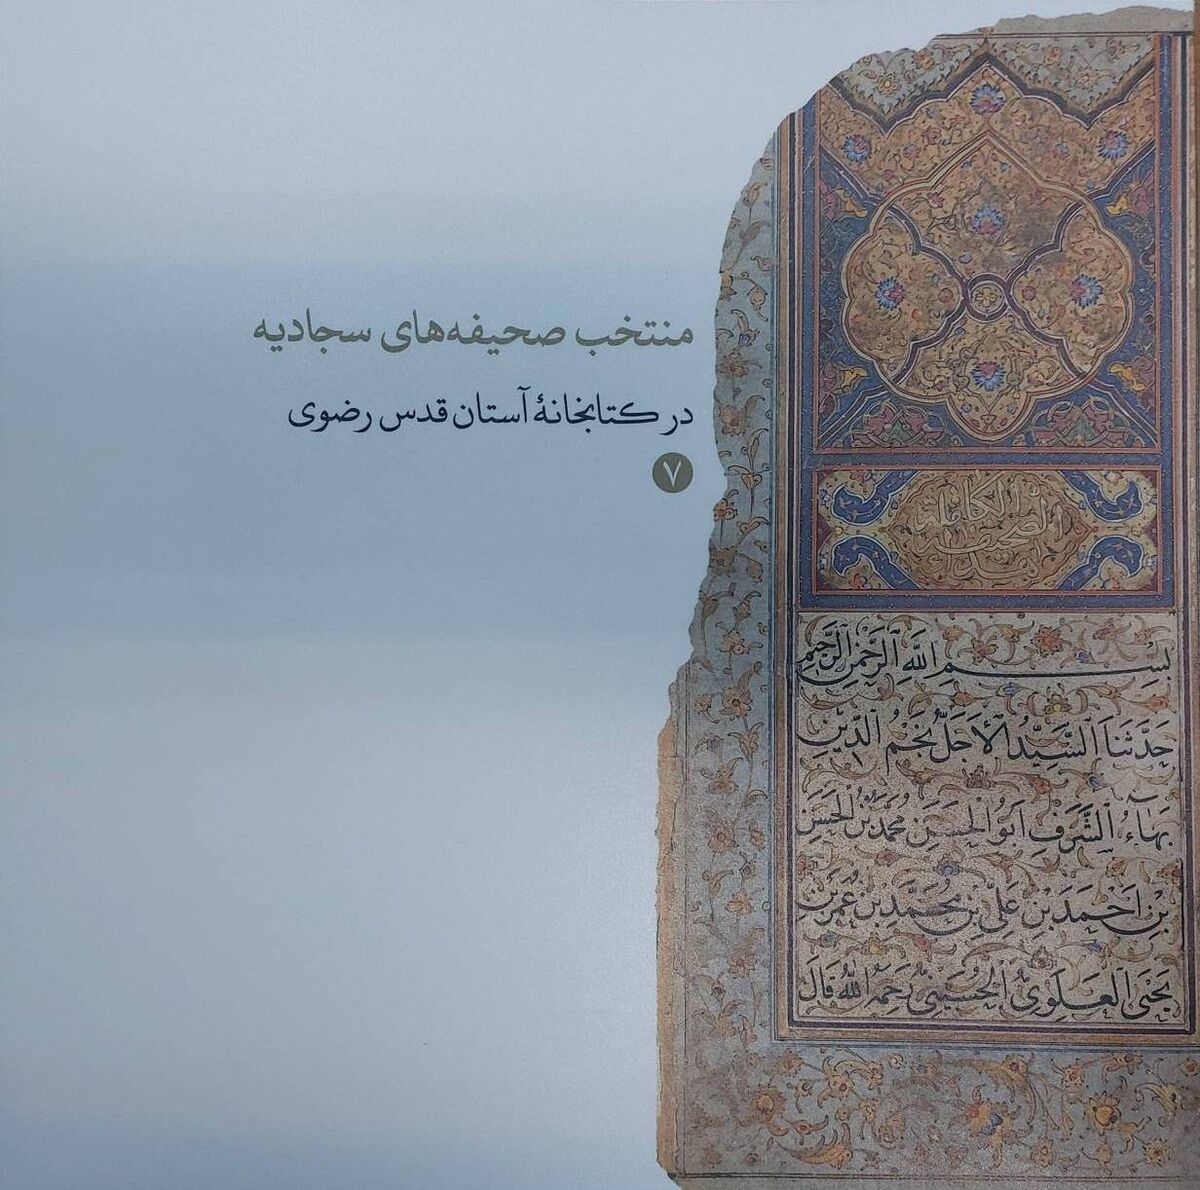 منتخب صحیفه‌های سجادیه
در کتابخانهٔ آستان قدس رضوی
۷
الصحيفة الكاملة
بِسْمِ اللَّهِ الرَّحْمٰنِ الرَّحِيمِ
حَدَّثَنَا السَّيِّدُ الْأَجَلُّ نَجْمُ الدِّينِ
بَهَاءُ الشَّرَفِ أَبُو الْحَسَنِ مُحَمَّدُ بْنُ الْحَسَنِ
بْنِ أَحْمَدَ بْنِ عَلِيِّ بْنِ مُحَمَّدِ بْنِ عُمَرَ بْنِ
يَحْيَى الْعَلَوِيُّ الْحُسَيْنِيُّ رَحِمَهُ اللَّهُ قَالَ